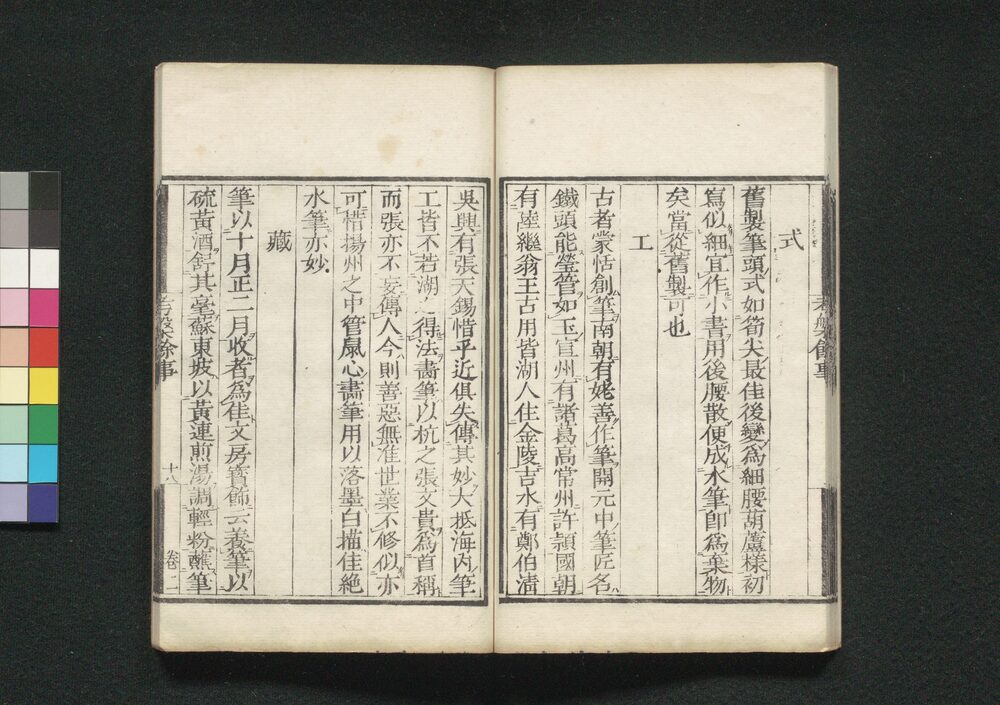 式
舊製筆頭式如筍尖最佳後變爲細腰葫蘆樣初
寫似細宜作小書用後腰散便成水筆卽爲棄物
矣當從舊製可也
工
古者蒙恬創筆南朝有姥善作筆開元中筆匠名
鐵頭能瑩管如玉宣州有諸葛高常州許頴國朝
有陸繼翁王古用皆湖人住金陵吉水有鄭伯清
吳興有張天錫惜乎近俱失傳其妙大抵海內筆
工皆不若湖之得法畵筆以杭之張文貴爲首稱
而張亦不妄傳人今則善惡無准世業不修似亦
可惜揚州之中管鼠心畵筆用以落墨白描佳絶
水筆亦妙
藏
筆以十月正二月收者爲佳文房寳飾云養筆以
硫黃酒舒其毫蘇東坡以黃連煎湯調輕粉蘸筆
考槃餘事
十八
卷二